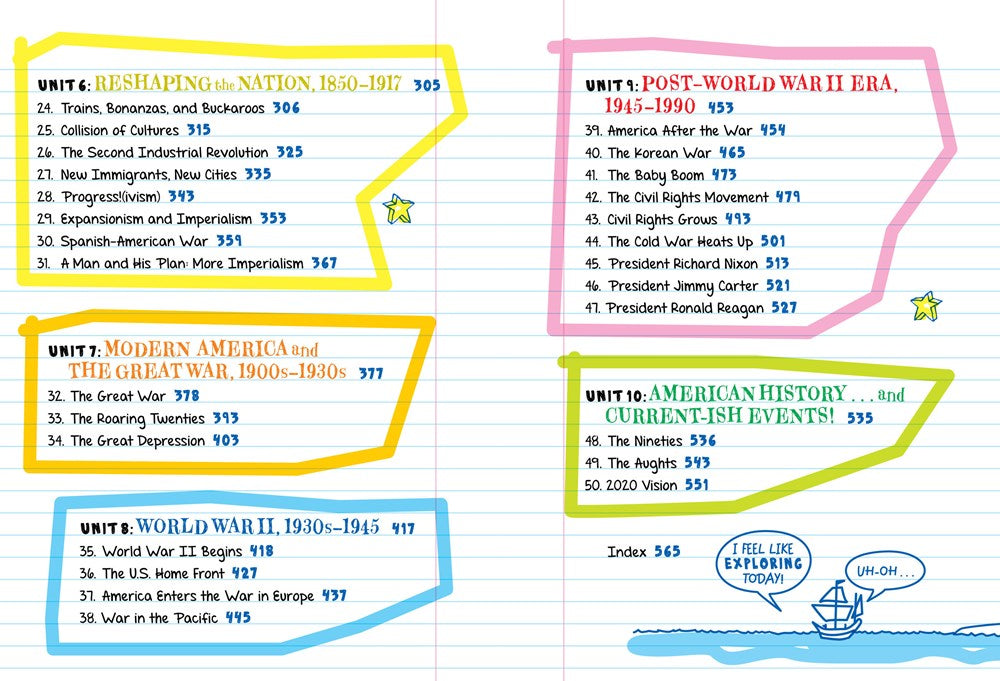 UNIT 6: RESHAPING the NATION, 1850–1917 305
24. Trains, Bonanzas, and Buckaroos 306
25. Collision of Cultures 315
26. The Second Industrial Revolution 325
27. New Immigrants, New Cities 335
28. Progress!(ivism) 343
29. Expansionism and Imperialism 353
30. Spanish-American War 359
31. A Man and His Plan: More Imperialism 367
UNIT 7: MODERN AMERICA and
THE GREAT WAR, 1900s–1930s 377
32. The Great War 378
33. The Roaring Twenties 393
34. The Great Depression 403
UNIT 8: WORLD WAR II, 1930s–1945 417
35. World War II Begins 418
36. The U.S. Home Front 427
37. America Enters the War in Europe 437
38. War in the Pacific 445
UNIT 9: POST–WORLD WAR II ERA,
1945–1990 453
39. America After the War 454
40. The Korean War 465
41. The Baby Boom 473
42. The Civil Rights Movement 479
43. Civil Rights Grows 493
44. The Cold War Heats Up 501
45. President Richard Nixon 513
46. President Jimmy Carter 521
47. President Ronald Reagan 527
UNIT 10: AMERICAN HISTORY . . . and
CURRENT-ISH EVENTS! 535
48. The Nineties 536
49. The Aughts 543
50. 2020 Vision 551
Index 565
I FEEL LIKE
EXPLORING
TODAY!
UH-OH . . .